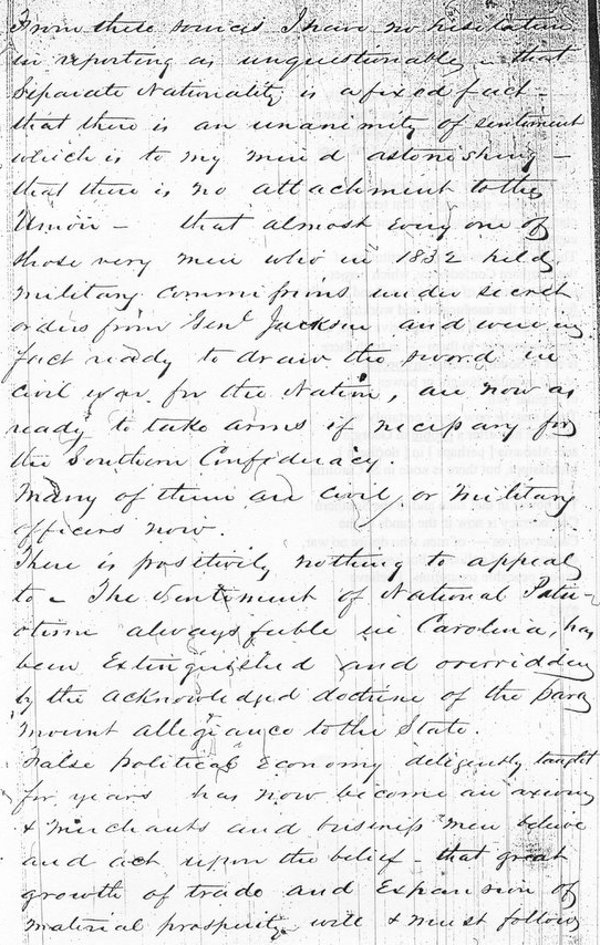 From these sources I have no hesitation
in reporting as unquestionable – that
Separate Nationality is a fixed fact –
that there is an unanimity of sentiment
which is to my mind astonishing –
that there is no attachment to the
Union – that almost every one of
those very men who in 1832 held
military commissions under secret
orders from Genl Jackson and were in
fact ready to draw the sword in
civil war for the Nation, are now as
ready to take arms if necessary for
the Southern Confederacy
Many of them are civil or military
officers now.
There is positively nothing to appeal
to – The Sentiment of National Patri-
otism always feeble in Carolina, has
been Extinguished and overridden
by the acknowledged doctrine of the para
mount allegiance to the State.
False political Economy diligently taught
for years has now become an axiom
& merchants and business men believe
and act upon the belief – that great
growth of trade and Expansion of
material prosperity will & must follow